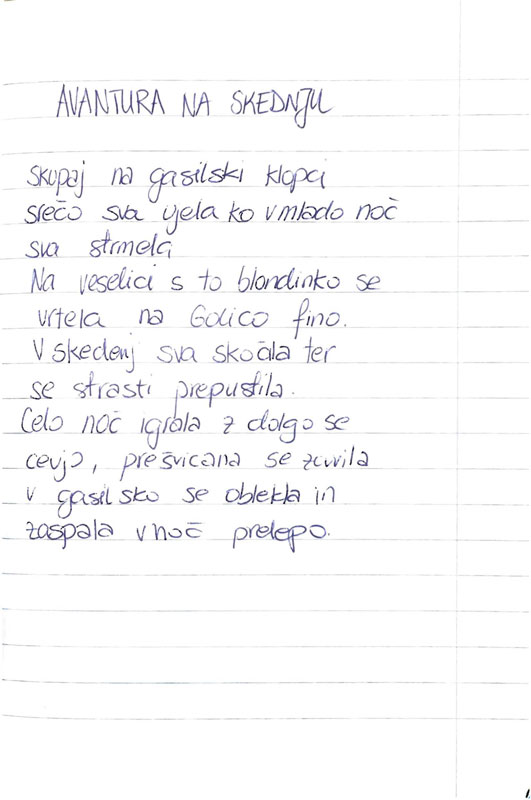 AVANTURA NA SKEDNJU
Skupaj na gasilski klopci
srečo sva ujela ko v mlado noč
sva strmela
Na veselici s to blondinko se
vrtela na Golico fino.
V skedenj sva skočila ter
se strasti prepustila.
Celo noč igrala z dolgo se
cevjo, prešvicana se zvrila
v gasilsko se oblekla in
zaspala v noč prelepo.